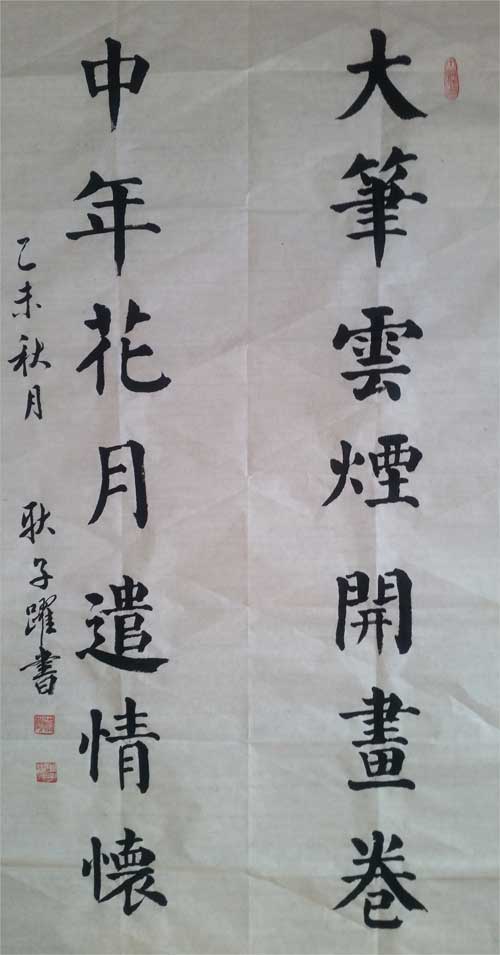 大筆雲煙開畫卷
中年花月遣情懷
乙未秋月 耿子躍書